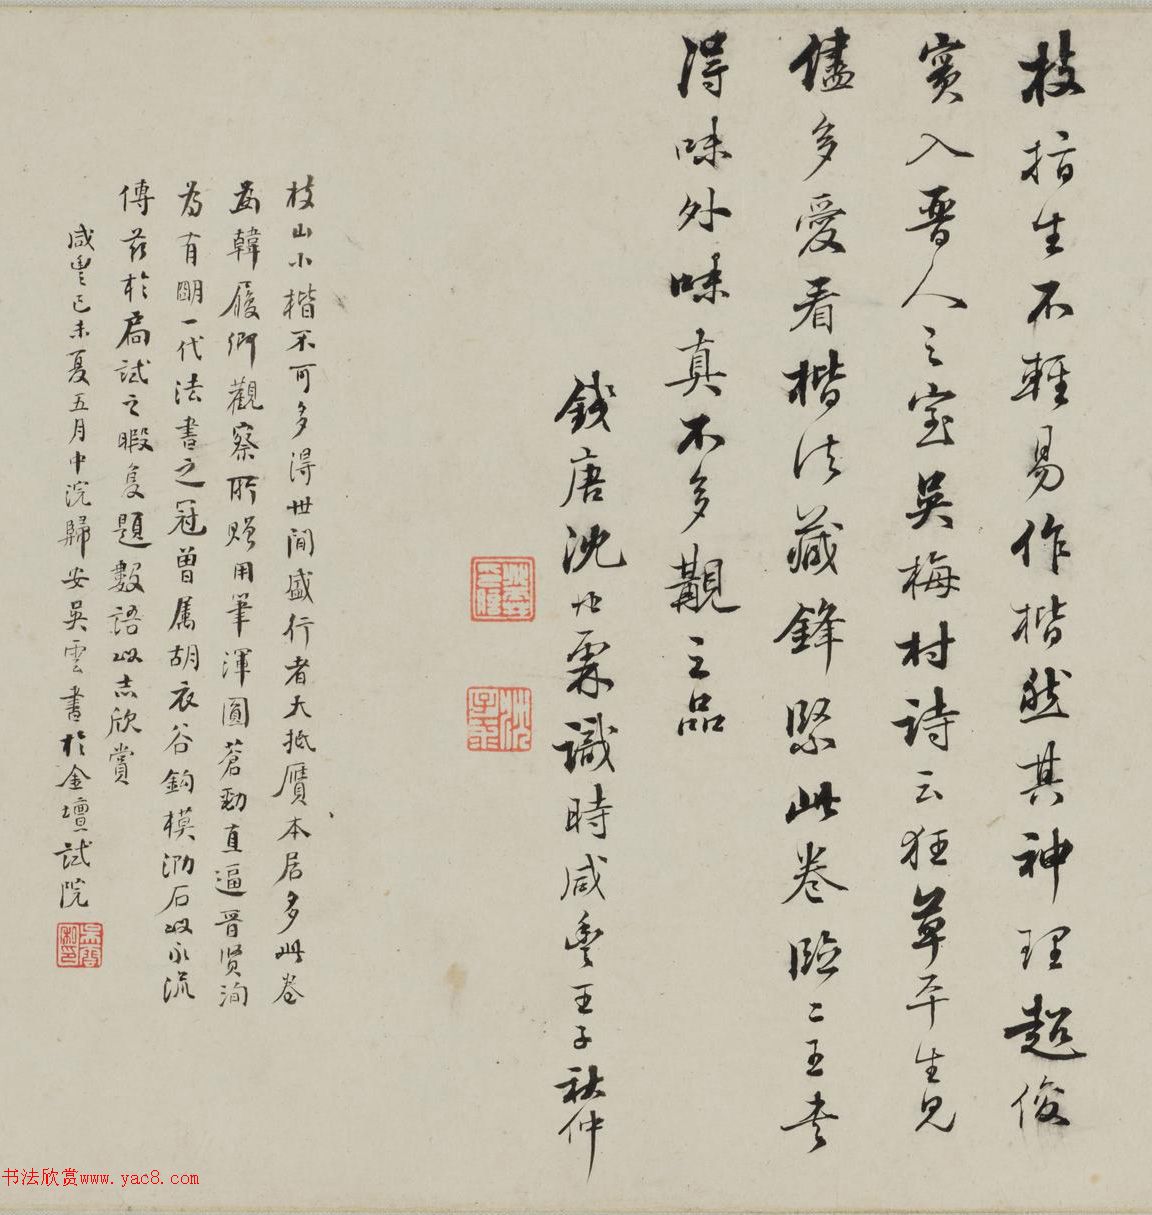 枝指生不輕易作楷然其神理超俊
實入晉人之室吳梅村詩云狂草平生見
儘多愛看楷法藏鋒緊此卷臨二王書
得味外味真不多覯之品
錢唐沈兆霖識時咸豐壬子秋仲
枝山小楷不可多得世間盛行者大抵贋本居多此卷
為韓履卿觀察所贈用筆渾圓蒼勁直逼晉賢洵
為有明一代法書之冠曾屬胡衣谷鉤模泐石以永流
傳茲於扃試之暇复題數語以志欣賞
咸豐己未夏五月中浣歸安吳雲書於金壇試院
吳雲私印
书法欣赏www.yac8.com